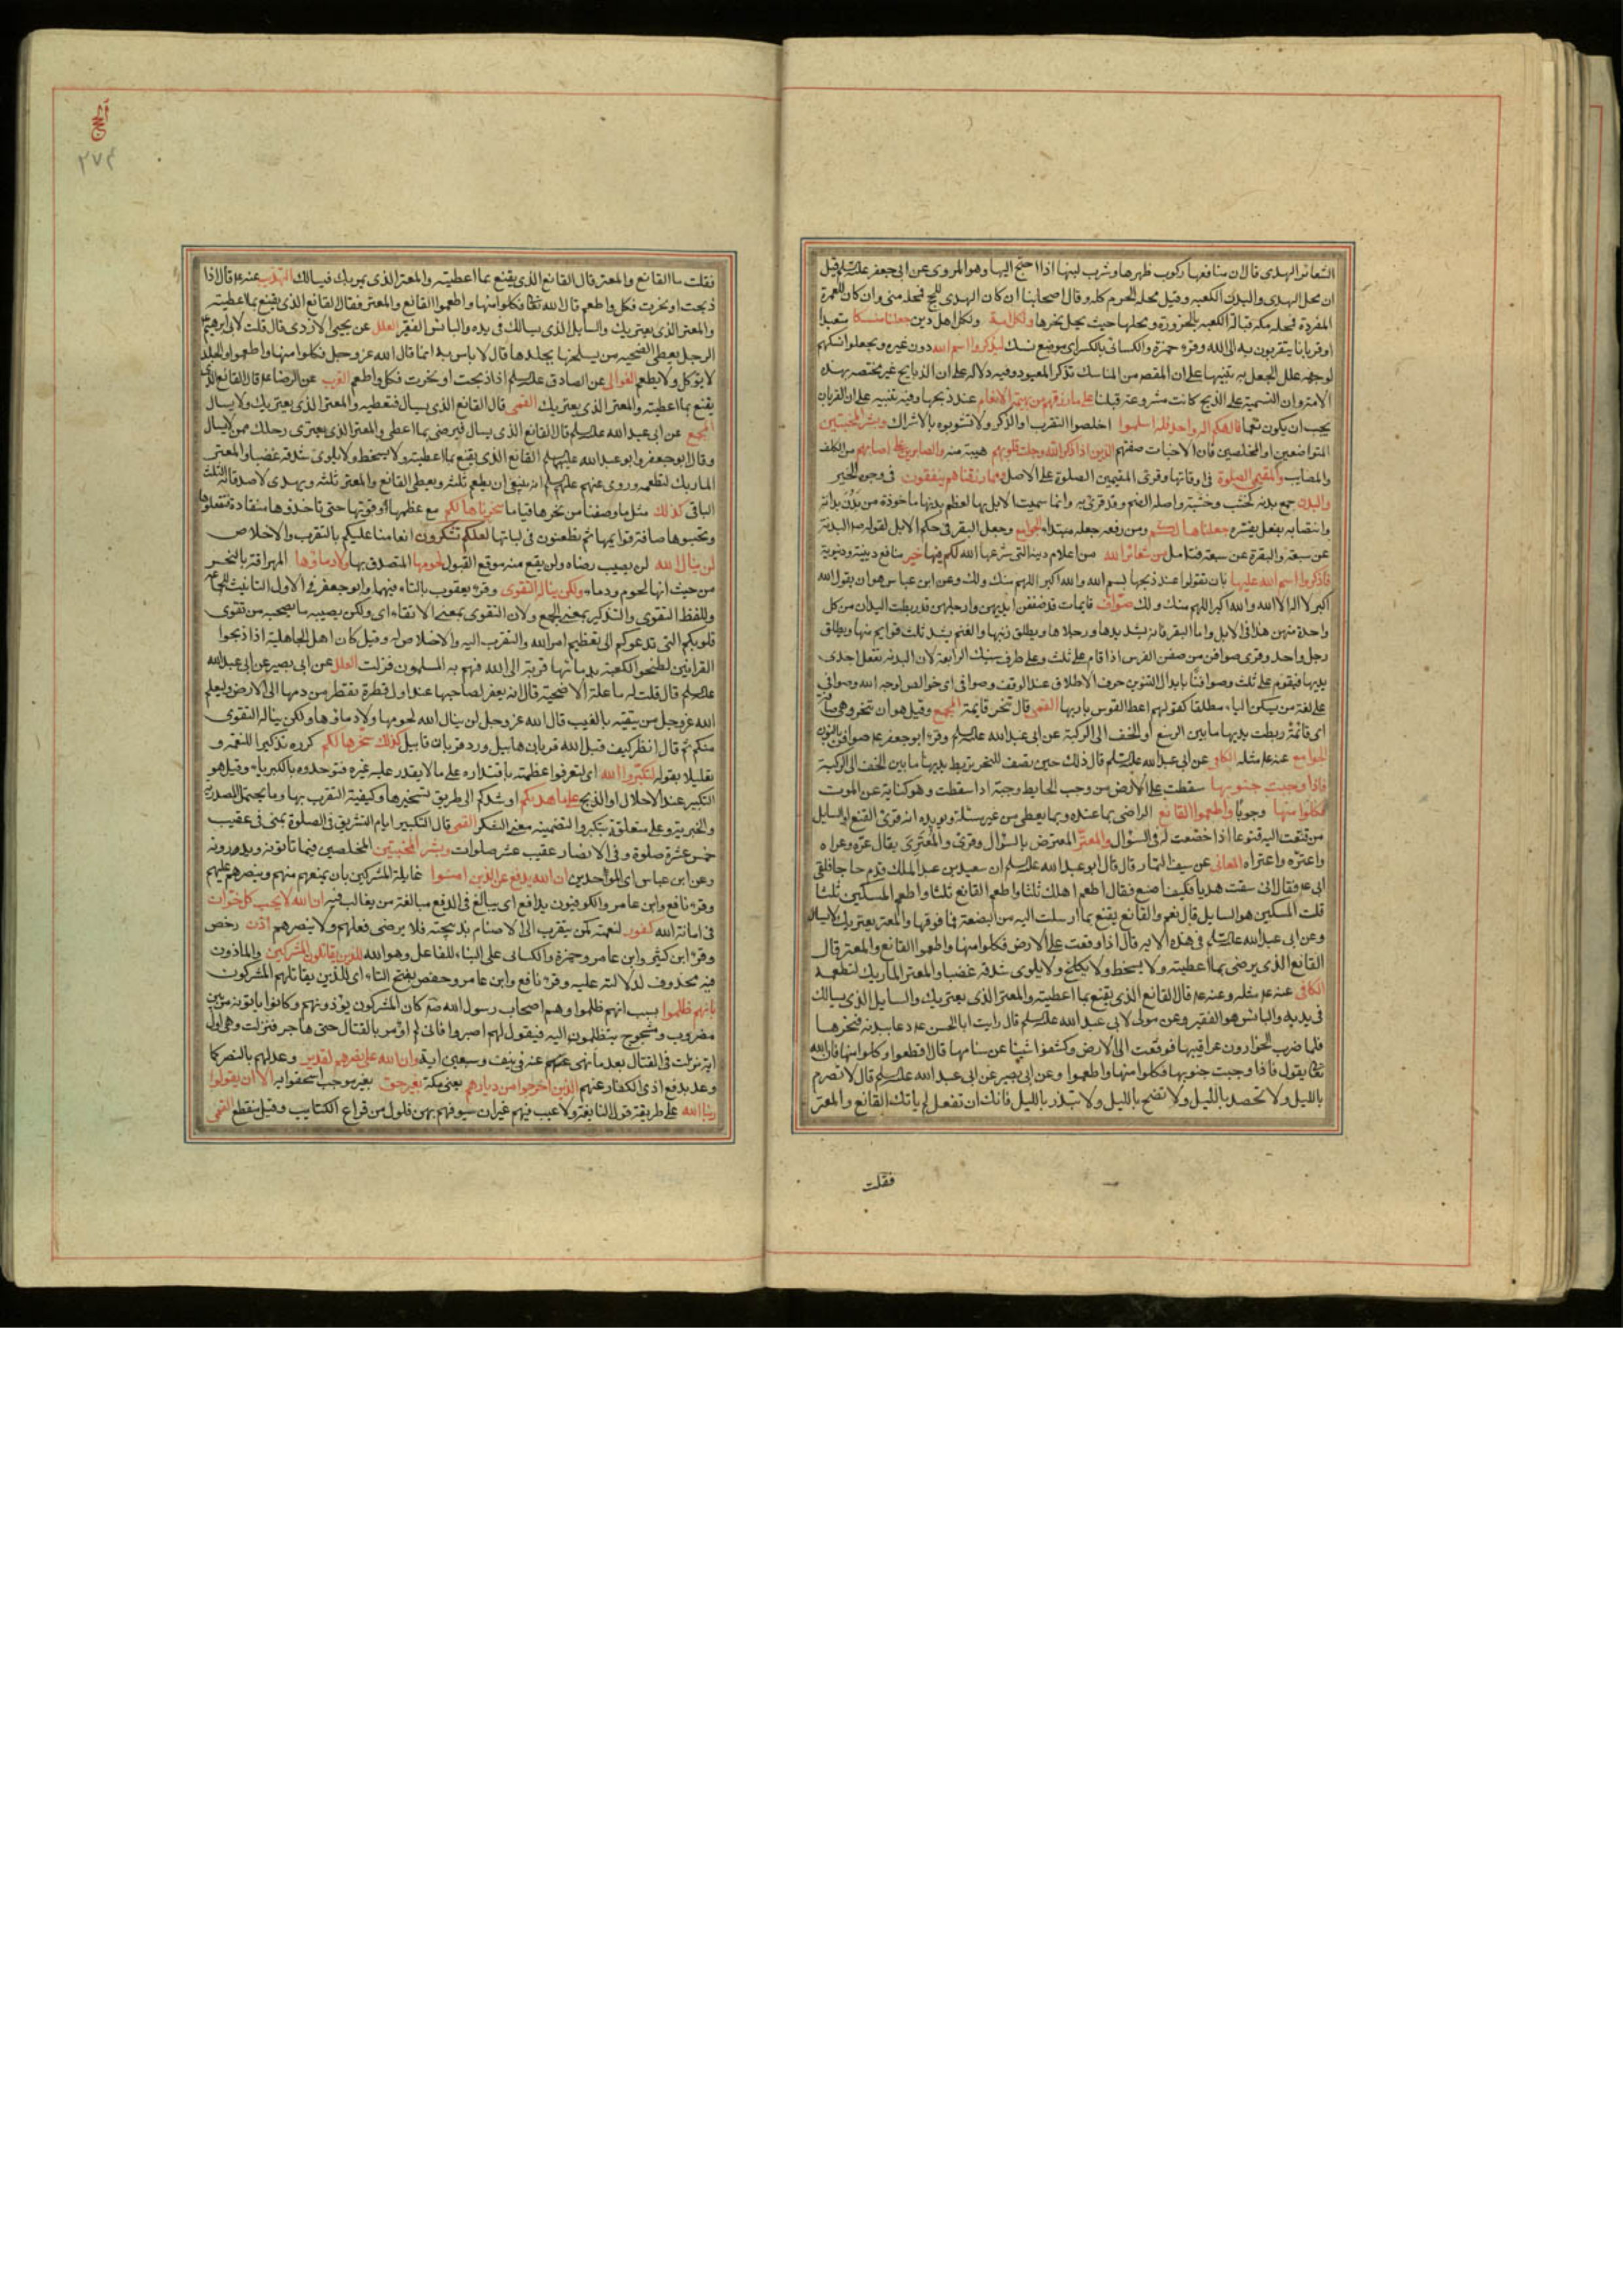 الشعائر الهدى قال ان منافعها ركوب ظهرها وشرب لبنها اذا احتج اليها وهو المروى عن ابى جعفر عليه السلم قيل
ان محل الهدى والبدن الكعبه وقيل محله الحرم كله وقال اصحابنا ان كان الهدى للحج فمحله منى وان كان للعمرة
المفردة فمحله مكه قبالة الكعبه بالحزورة ومحلها حيث يحل نحرها ولكل امة ولكل اهل دين جعلنا منسكا متعبدا
او قربانا يتقربون به الى الله وقرء حمزة والكسائى بالكسر اى موضع نسك ليذكروا اسم الله دون غيره ويجعلوا نسكهم
لوجهه علل الجعل به تنبيها على ان المقصد من المناسك تذكر المعبود وفيه دلالة على ان الذبايح غير مختصه بهذه
الامة وان التسمية على الذبح كانت مشروعة قبلنا على ما رزقهم من بهيمة الانعام عند ذبحها وفيه تنبيه على ان القربان
يجب ان يكون نعما فالهكم اله واحد فله اسلموا اخلصوا التقرب او الذكر ولا تشوبوه بالاشراك وبشر المخبتين
المتواضعين او المخلصين فان الاخبات صفتهم الذين اذا ذكر الله وجلت قلوبهم هيبة منه والصابرين على ما اصابهم من الكلف
والمصايب والمقيمى الصلوة فى اوقاتها وقرئ المقيمين الصلوة على الاصل ومما رزقناهم ينفقون فى وجوه الخير
والبدن جمع بدنه كخشب وخشبة واصله الضم وقد قرئ به وانما سميت الابل بها لعظم بدنها ماخوذة من بدن بدانة
وانتصابه بفعل يفسره جعلناها لكم ومن رفعه جعله مبتداء الجوامع وجعل البقر فى حكم الابل لقوله ص البدنة
عن سبعة والبقرة عن سبعة فتامل من شعائر الله من اعلام دينه التى شرعها الله لكم فيها خير منافع دينية ودنيوية
فاذكروا اسم الله عليها بان تقولوا عند ذبحها بسم الله والله اكبر اللهم منك ولك وعن ابن عباس هو ان يقول الله
اكبر لا اله الا الله والله اكبر اللهم منك ولك صواف قايمات قد صففن ايديهن وارجلهن قد ربطت اليدان من كل
واحدة منهن هذا فى الابل واما البقر فانه يشد يدها ورجلاها ويطلق ذنبها والغنم يشد ثلث قوايم منها ويطلق
رجل واحد وقرئ صوافن من صفن الفرس اذا قام على ثلث وعلى طرف سنبك الرابعة لان البدنه تعقل احدى
يديها فيقوم على ثلث وصوافنا بابدال التنوين حرف الاطلاق عند الوقف وصوافى اى خوالص لوجه الله وصوافى
على لغة من يسكن الياء مطلقا كقولهم اعط القوس باريها القمى قال تنحر قايمة المجمع وقيل هو ان تنحر وهى صافة
اى قائمة ربطت يديها ما بين الرسغ او الخف الى الركبة عن ابى عبد الله عليه السلم وقرء ابو جعفر ع صوافن بالنون
الجوامع عنه ع مثله الكافى عن ابى عبد الله عليه السلم قال ذلك حين تصف للنحر يربط يديها ما بين الخف الى الركبة
فاذا وجبت جنوبها سقطت على الارض من وجب الحايط وجبة اذا سقطت وهو كناية عن الموت
فكلوا منها وجوبا واطعموا القانع الراضى بما عنده وبما يعطى من غير مسئلة ويؤيده انه قرئ القنع او السايل
من قنعت اليه قنوعا اذا خضعت له فى السؤال والمعتر المعترض بالسؤال وقرئ والمعترى يقال عره وعراه
واعتره واعتراه المعانى عن سيف التمار قال قال ابو عبد الله عليه السلم ان سعيد بن عبد الملك قدم حاجا فلقى
ابى ع فقال انى سقت هديا فكيف اصنع فقال اطعم اهلك ثلثا واطعم القانع ثلثا واطعم المسكين ثلثا
قلت المسكين هو السايل قال نعم والقانع يقنع بما ارسلت اليه من البضعة فما فوقها والمعتر يعتريك لا يسالك
وعن ابى عبد الله عليه السلم فى هذه الاية قال اذا وقعت على الارض فكلوا منها واطعموا القانع والمعتر قال
القانع الذى يرضى بما اعطيته ولا يسخط ولا يكلح ولا يلوى شدقه غضبا والمعتر المار بك لتطعمه
الكافى عنه ع مثله وعنه ع قال القانع الذى يقنع بما اعطيته والمعتر الذى يعتريك والسايل الذى يسالك
فى يديه والبائس هو الفقير وعن مولى لابى عبد الله عليه السلم قال رايت ابا الحسن ع دعا ببدنه فنحرها
فلما ضرب الجزارون عراقيبها فوقعت الى الارض وكشفوا شيئا عن سنامها قال اقطعوا وكلوا منها فان الله
تعالى يقول فاذا وجبت جنوبها فكلوا منها واطعموا وعن ابى بصير عن ابى عبد الله عليه السلم قال لا تصرم
بالليل ولا تحصد بالليل ولا تضح بالليل ولا تبذر بالليل فانك ان تفعل لم ياتك القانع والمعتر
فقلت
٢٧٤
فقلت ما القانع والمعتر قال القانع الذى يقنع بما اعطيته والمعتر الذى يمر بك فيسالك التهذيب عنه ع قال اذا
ذبحت او نحرت فكل واطعم قال الله تعالى فكلوا منها واطعموا القانع والمعتر فقال القانع الذى يقنع بما اعطيته
والمعتر الذى يعتريك والسايل الذى يسالك فى يده والبائس الفقير العلل عن يحيى الازدى قال قلت لابى ابرهيم ع
الرجل يعطى الضحية من يسلخها بجلدها قال لا باس به انما قال الله عز وجل فكلوا منها واطعموا والجلد
لا يؤكل ولا يطعم الغوالى عن الصادق عليه السلم اذا ذبحت او نحرت فكل واطعم القرب عن الرضا ع قال القانع الذى
يقنع بما اعطيته والمعتر الذى يعتريك القمى قال القانع الذى يسال فتعطيه والمعتر الذى يعتريك ولا يسال
المجمع عن ابى عبد الله عليه السلم قال القانع الذى يسال فيرضى بما اعطى والمعتر الذى يعترى رحلك ممن لا يسال
وقال ابو جعفر وابو عبد الله عليهما السلم القانع الذى يقنع بما اعطيته ولا يسخط ولا يلوى شدقه غضبا والمعتر
المار بك لتطعمه وروى عنهم عليهم السلم انه ينبغى ان يطعم ثلثه ويعطى القانع والمعتر ثلثه ويهدى لاصدقائه الثلث
الباقى كذلك مثل ما وصفنا من نحرها قياما سخرناها لكم مع عظمها وقوتها حتى تاخذوها منقادة فتعقلوها
وتحبسوها صافة قوايمها ثم تطعنون فى لباتها لعلكم تشكرون انعامنا عليكم بالتقرب والاخلاص
لن ينال الله لن يصيب رضاه ولن يقع منه موقع القبول لحومها المتصدق بها ولا دماؤها المهراقة بالنحر
من حيث انها لحوم ودماء ولكن يناله التقوى وقرء يعقوب بالتاء فيهما وابو جعفر فى الاول التانيث للجماعة
وللفظ التقوى والتذكير بمعنى الجمع ولان التقوى بمعنى الاتقاء اى ولكن يصيبه ما يصحبه من تقوى
قلوبكم التى تدعوكم الى تعظيم امر الله والتقرب اليه والاخلاص له وقيل كان اهل الجاهلية اذا ذبحوا
القرابين لطخوا الكعبة بدمائها قربة الى الله فهم به المسلمون فنزلت العلل عن ابى بصير عن ابى عبد الله
عليه السلم قال قلت له ما علة الاضحية قال انه يغفر لصاحبها عند اول قطرة تقطر من دمها الى الارض وليعلم
الله عز وجل من يتقيه بالغيب قال الله عز وجل لن ينال الله لحومها ولا دماؤها ولكن يناله التقوى
منكم ثم قال انظر كيف قبل الله قربان هابيل ورد قربان قابيل كذلك سخرها لكم كرره تذكيرا للنعمة و
تعليلا بقوله لتكبروا الله اى لتعرفوا عظمته باقتداره على ما لا يقدر عليه غيره فتوحدوه بالكبرياء وقيل هو
التكبير عند الاحلال او الذبح على ما هديكم اوشدكم الى طريق تسخيرها وكيفية التقرب بها وما يحتمل المصدرية
والخبرية وعلى متعلقة بتكبروا لتضمينه معنى الشكر القمى قال التكبير ايام التشريق فى الصلوة بمنى فى عقيب
خمس عشرة صلوة وفى الامصار عقيب عشر صلوات وبشر المحسنين المخلصين فيما تاتونه ويذرونه
وعن ابن عباس اى الموحدين ان الله يدفع عن الذين امنوا غايلة المشركين بان يمنعهم منهم وينصرهم عليهم
وقرء نافع وابن عامر والكوفيون يدافع اى يبالغ فى الدفع مبالغة من يغالب فيه ان الله لا يحب كل خوان
فى امانة الله كفور لنعمته كمن يتقرب الى الاصنام بذبيحته فلا يرضى فعلهم ولا ينصرهم اذن رخص
وقرء ابن كثير وابن عامر وحمزة والكسائى على البناء للفاعل وهو الله للذين يقاتلون المشركين والماذون
فيه محذوف لدلالته عليه وقرء نافع وابن عامر وحفص بفتح التاء اى للذين يقاتلهم المشركون
بانهم ظلموا بسبب انهم ظلموا وهم اصحاب رسول الله ص كان المشركون يؤذونهم وكانوا ياتونه من بين
مضروب ومشجوج يتظلمون اليه فيقول لهم اصبروا فانى لم اؤمر بالقتال حتى هاجر فنزلت وهى اول
اية نزلت فى القتال بعد ما نهى عنه فى نيف وسبعين اية وان الله على نصرهم لقدير وعد لهم بالنصر كما
وعد بدفع اذى الكفار عنهم الذين اخرجوا من ديارهم يعنى مكة بغير حق بغير موجب استحقوا به الا ان يقولوا
ربنا الله على طريقة قول النابغة ولا عيب فيهم غير ان سيوفهم بهن فلول من قراع الكتايب وقيل منقطع القمى